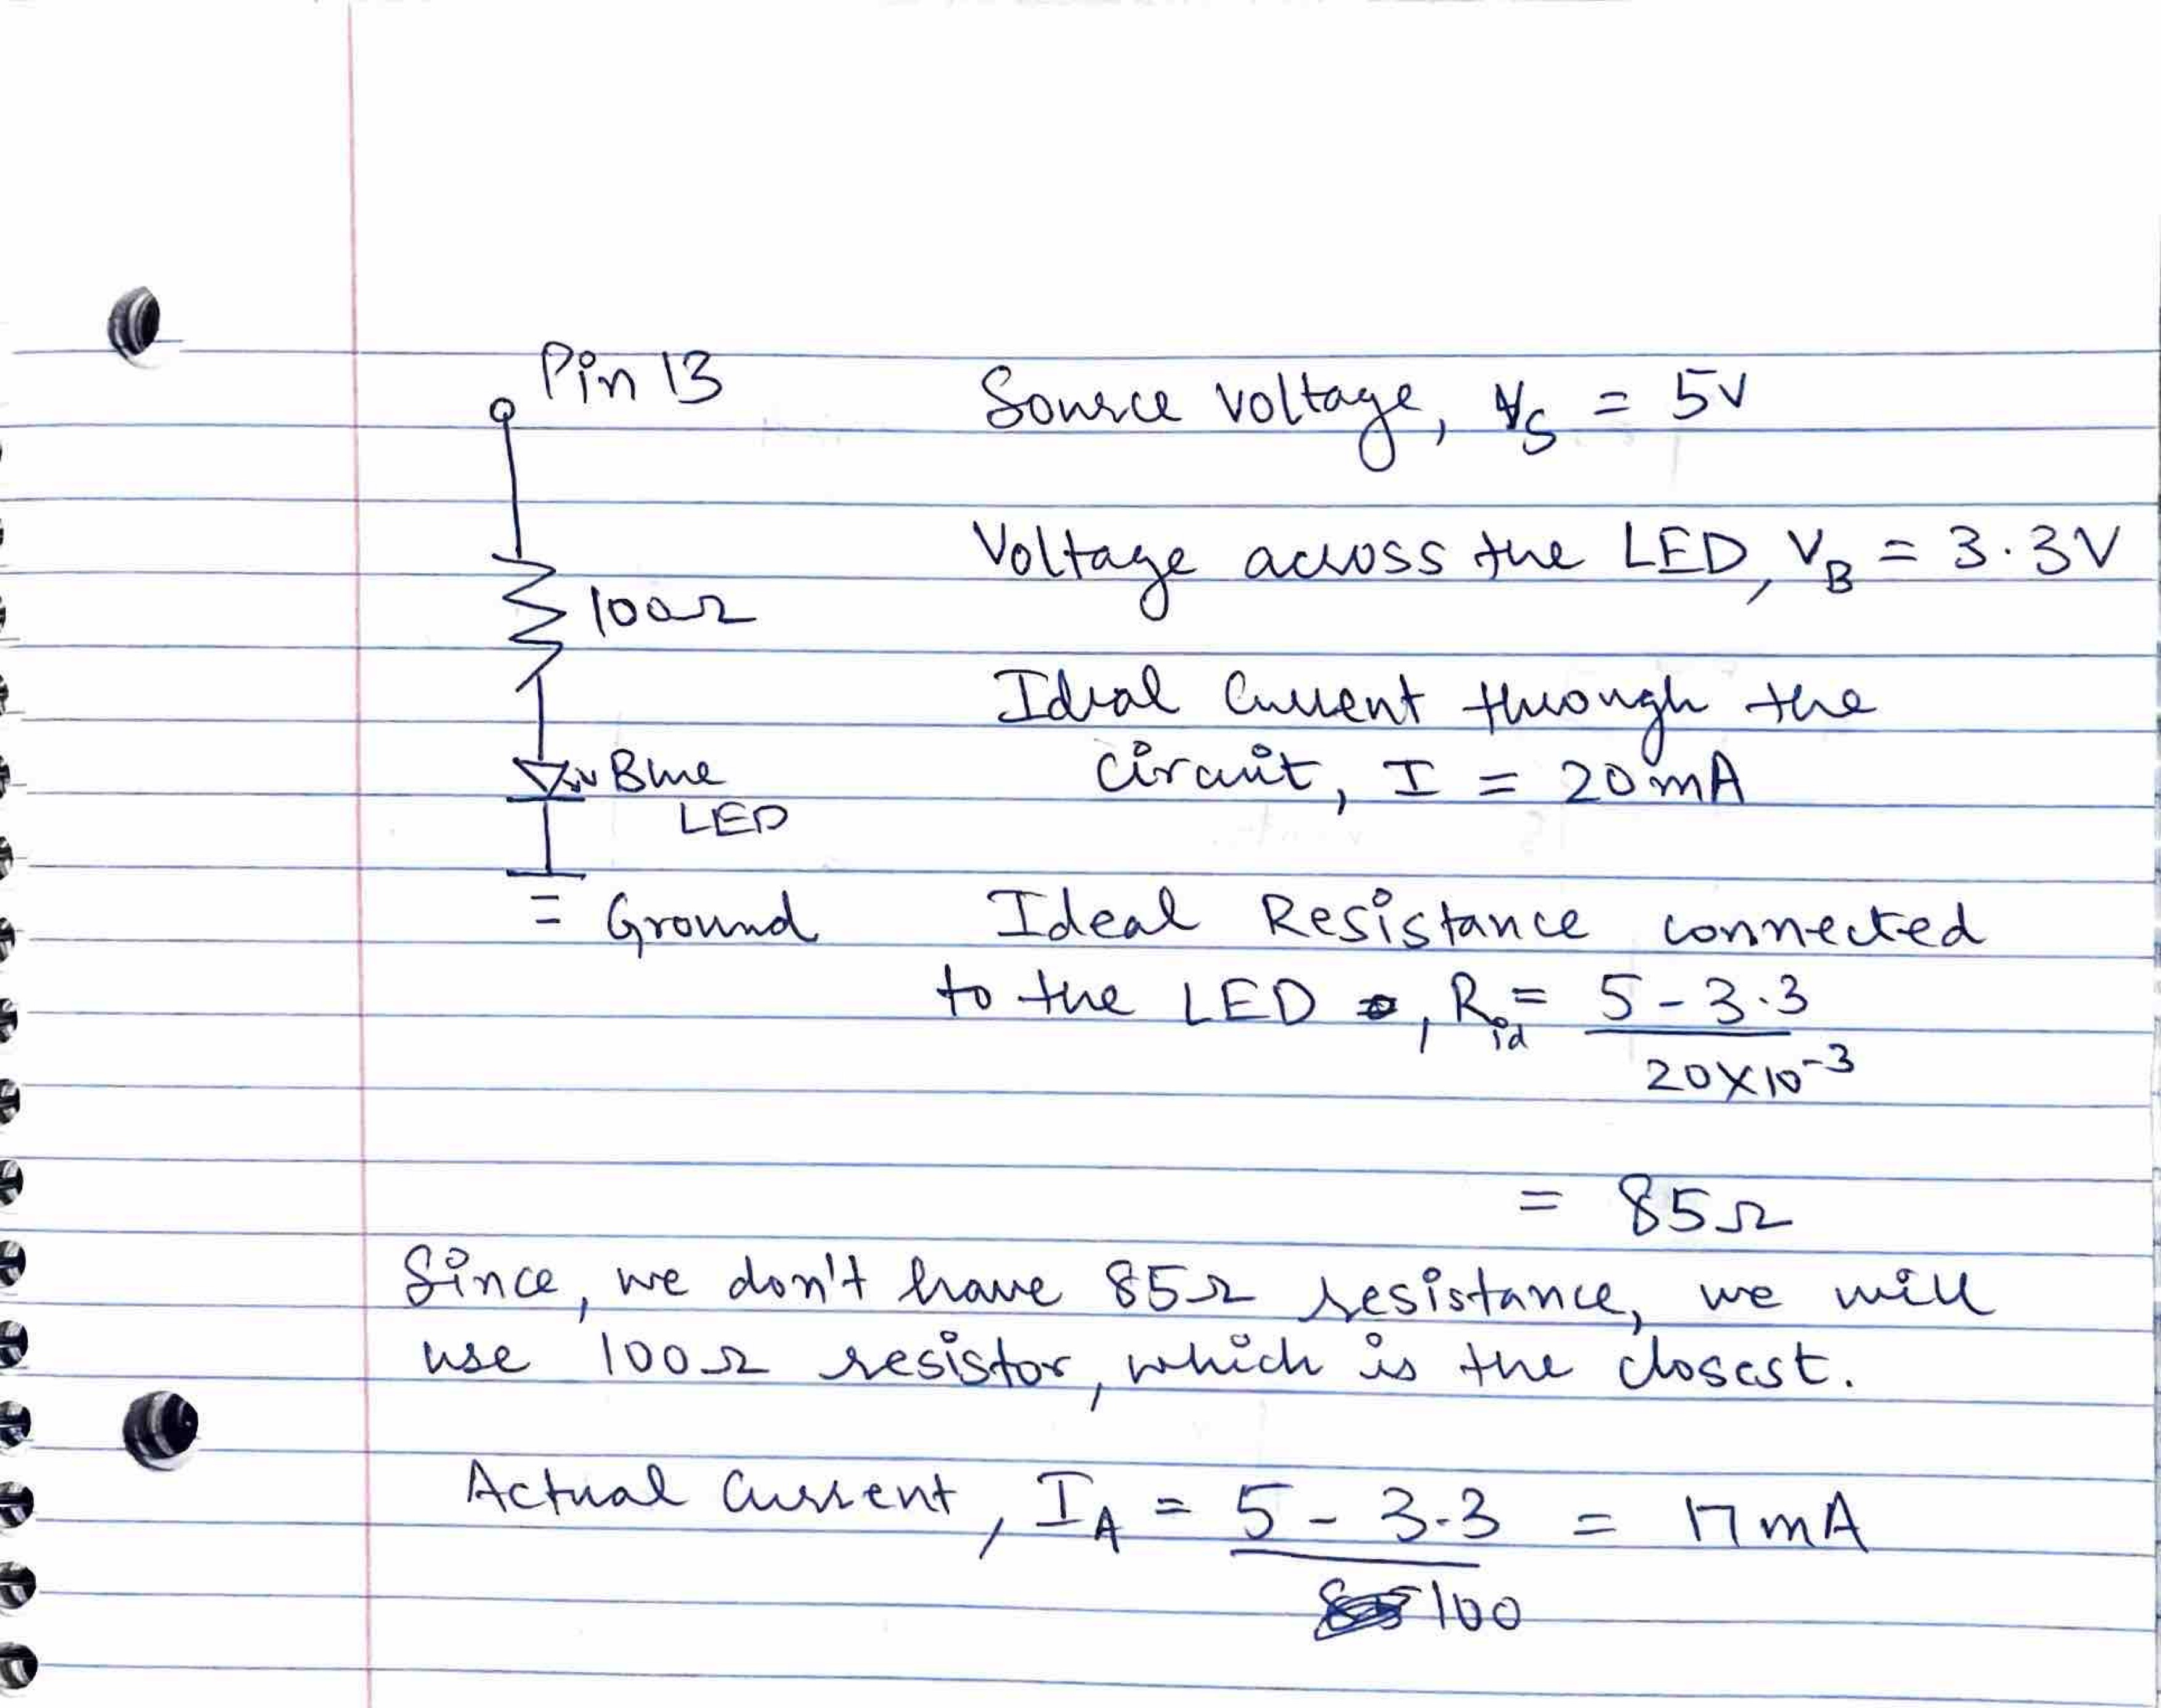 Pin 13
100Ω
Blue
LED
= Ground
Source Voltage, VS = 5V
Voltage across the LED, VB = 3.3V
Ideal Current through the
circuit, I = 20mA
Ideal Resistance connected
to the LED, Rid = 5 - 3.3
20×10⁻³
= 85Ω
Since, we don't have 85Ω resistance, we will
use 100Ω resistor, which is the closest.
Actual Current, IA = 5 - 3.3 = 17mA
100